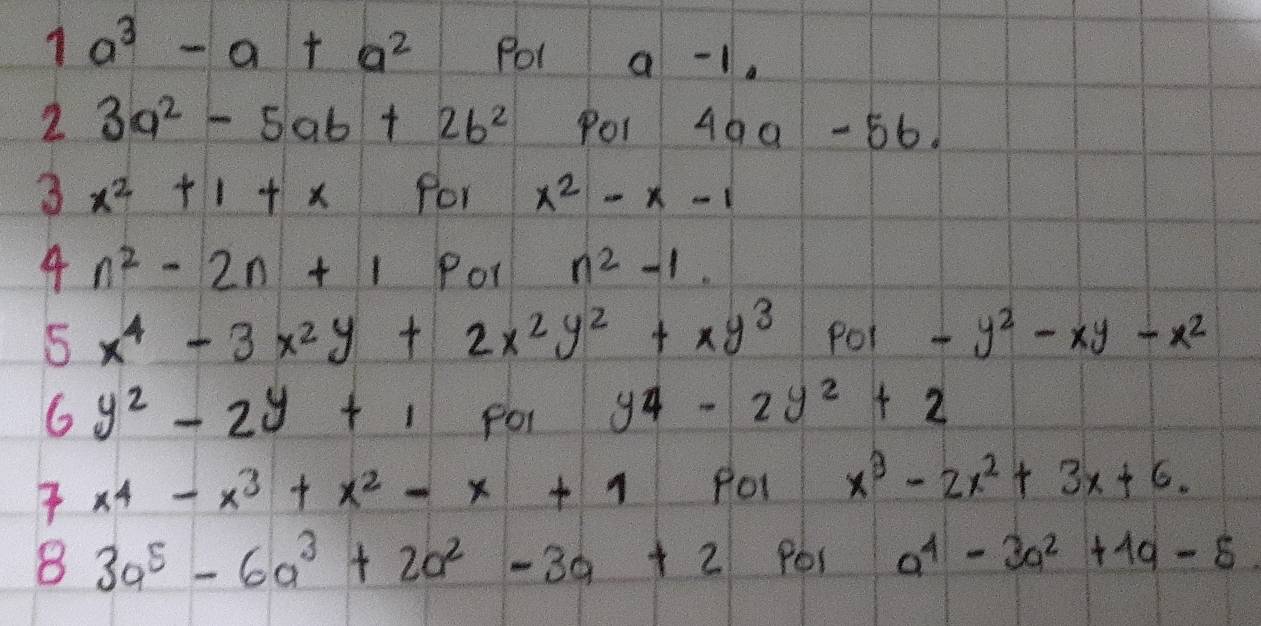 1 a³ - a + a² por a - 1.
2 3a² - 5ab + 2b² por 4aa - 5b.
3 x² + 1 + x por x² - x - 1
4 n² - 2n + 1 por n² - 1.
5 x⁴ - 3x²y + 2x²y² + xy³ por - y² - xy - x²
6 y² - 2y + 1 por y4 - 2y² + 2
7 x⁴ - x³ + x² - x + 1 por x³ - 2x² + 3x + 6.
8 3a⁵ - 6a³ + 2a² - 3a + 2 por a⁴ - 3a² + 4a - 5.